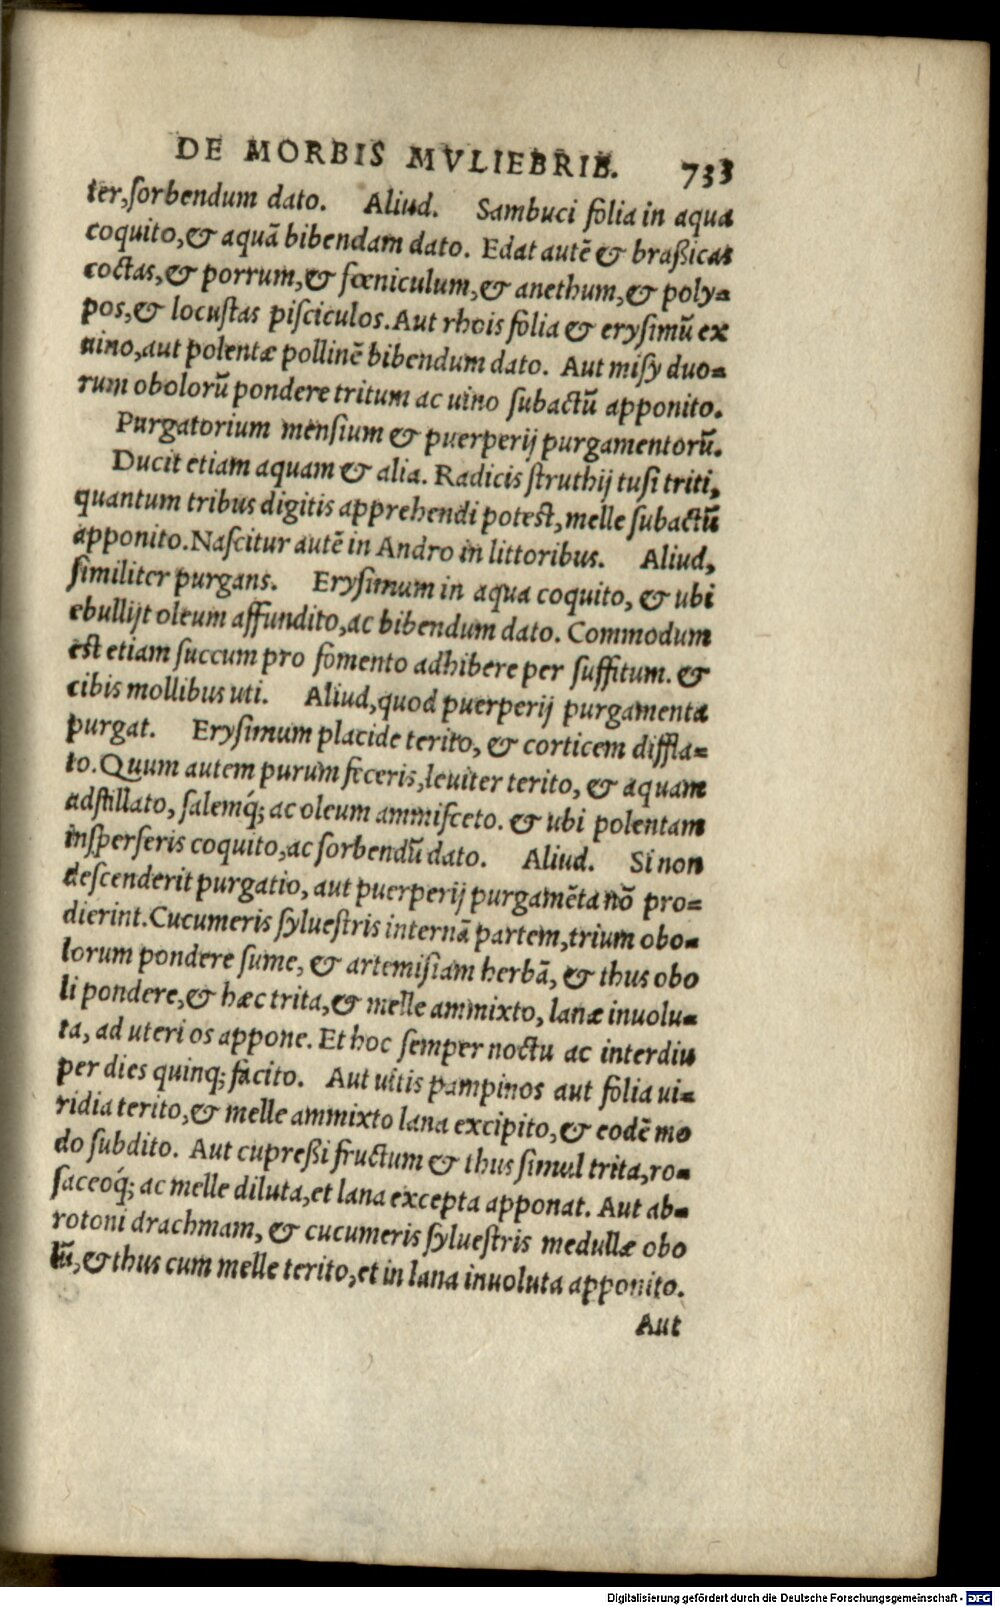 DE MORBIS MVLIEBRIB. 733
ter,ſorbendum dato. Aliud. Sambuci folia in aqua
coquito,& aquā bibendam dato. Edat autē & braßicas
coctas,& porrum,& fœniculum,& anethum,& poly-
pos,& locuſtas piſciculos. Aut rhois folia & eryſimū ex
uino,aut polentæ pollinē bibendum dato. Aut miſy duo-
rum obolorū pondere tritum ac uino ſubactū apponito.
Purgatorium menſium & puerperij purgamentorū.
Ducit etiam aquam & alia. Radicis ſtruthij tuſi triti,
quantum tribus digitis apprehendi poteſt,melle ſubactū
apponito. Naſcitur autē in Andro in littoribus. Aliud,
ſimiliter purgans. Eryſimum in aqua coquito, & ubi
ebullijt oleum affundito,ac bibendum dato. Commodum
eſt etiam ſuccum pro fomento adhibere per ſuffitum. &
cibis mollibus uti. Aliud,quod puerperij purgamenta
purgat. Eryſimum placide terito, & corticem diffla-
to. Quum autem purum feceris,leuiter terito, & aquam
adſtillato, ſalemq́; ac oleum ammiſceto. & ubi polentam
inſperſeris coquito,ac ſorbendū dato. Aliud. Si non
deſcenderit purgatio, aut puerperij purgamēta nō pro-
dierint. Cucumeris ſylueſtris internā partem,trium obo-
lorum pondere ſume, & artemiſiam herbā, & thus obo
li pondere,& hæc trita,& melle ammixto, lanæ inuolu-
ta, ad uteri os appone. Et hoc ſemper noctu ac interdiu
per dies quinq; facito. Aut uitis pampinos aut folia ui-
ridia terito,& melle ammixto lana excipito,& eodē mo
do ſubdito. Aut cupreßi fructum & thus ſimul trita,ro-
ſaceoq́; ac melle diluta,et lana excepta apponat. Aut ab-
rotoni drachmam, & cucumeris ſylueſtris medullæ obo
lū,& thus cum melle terito,et in lana inuoluta apponito.
Aut
Digitalisierung gefördert durch die Deutsche Forschungsgemeinschaft - DFG